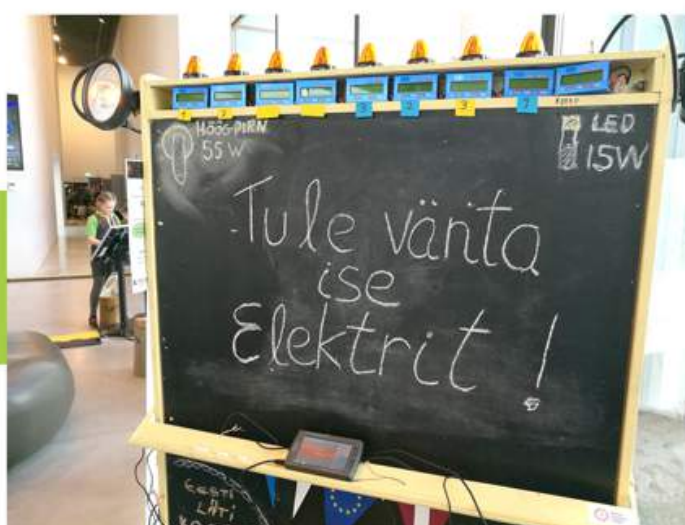 HÖÖGPIRN
55W
LED
15W
Tule vänta
ise
Elektrit!
EESTI
LÄTI